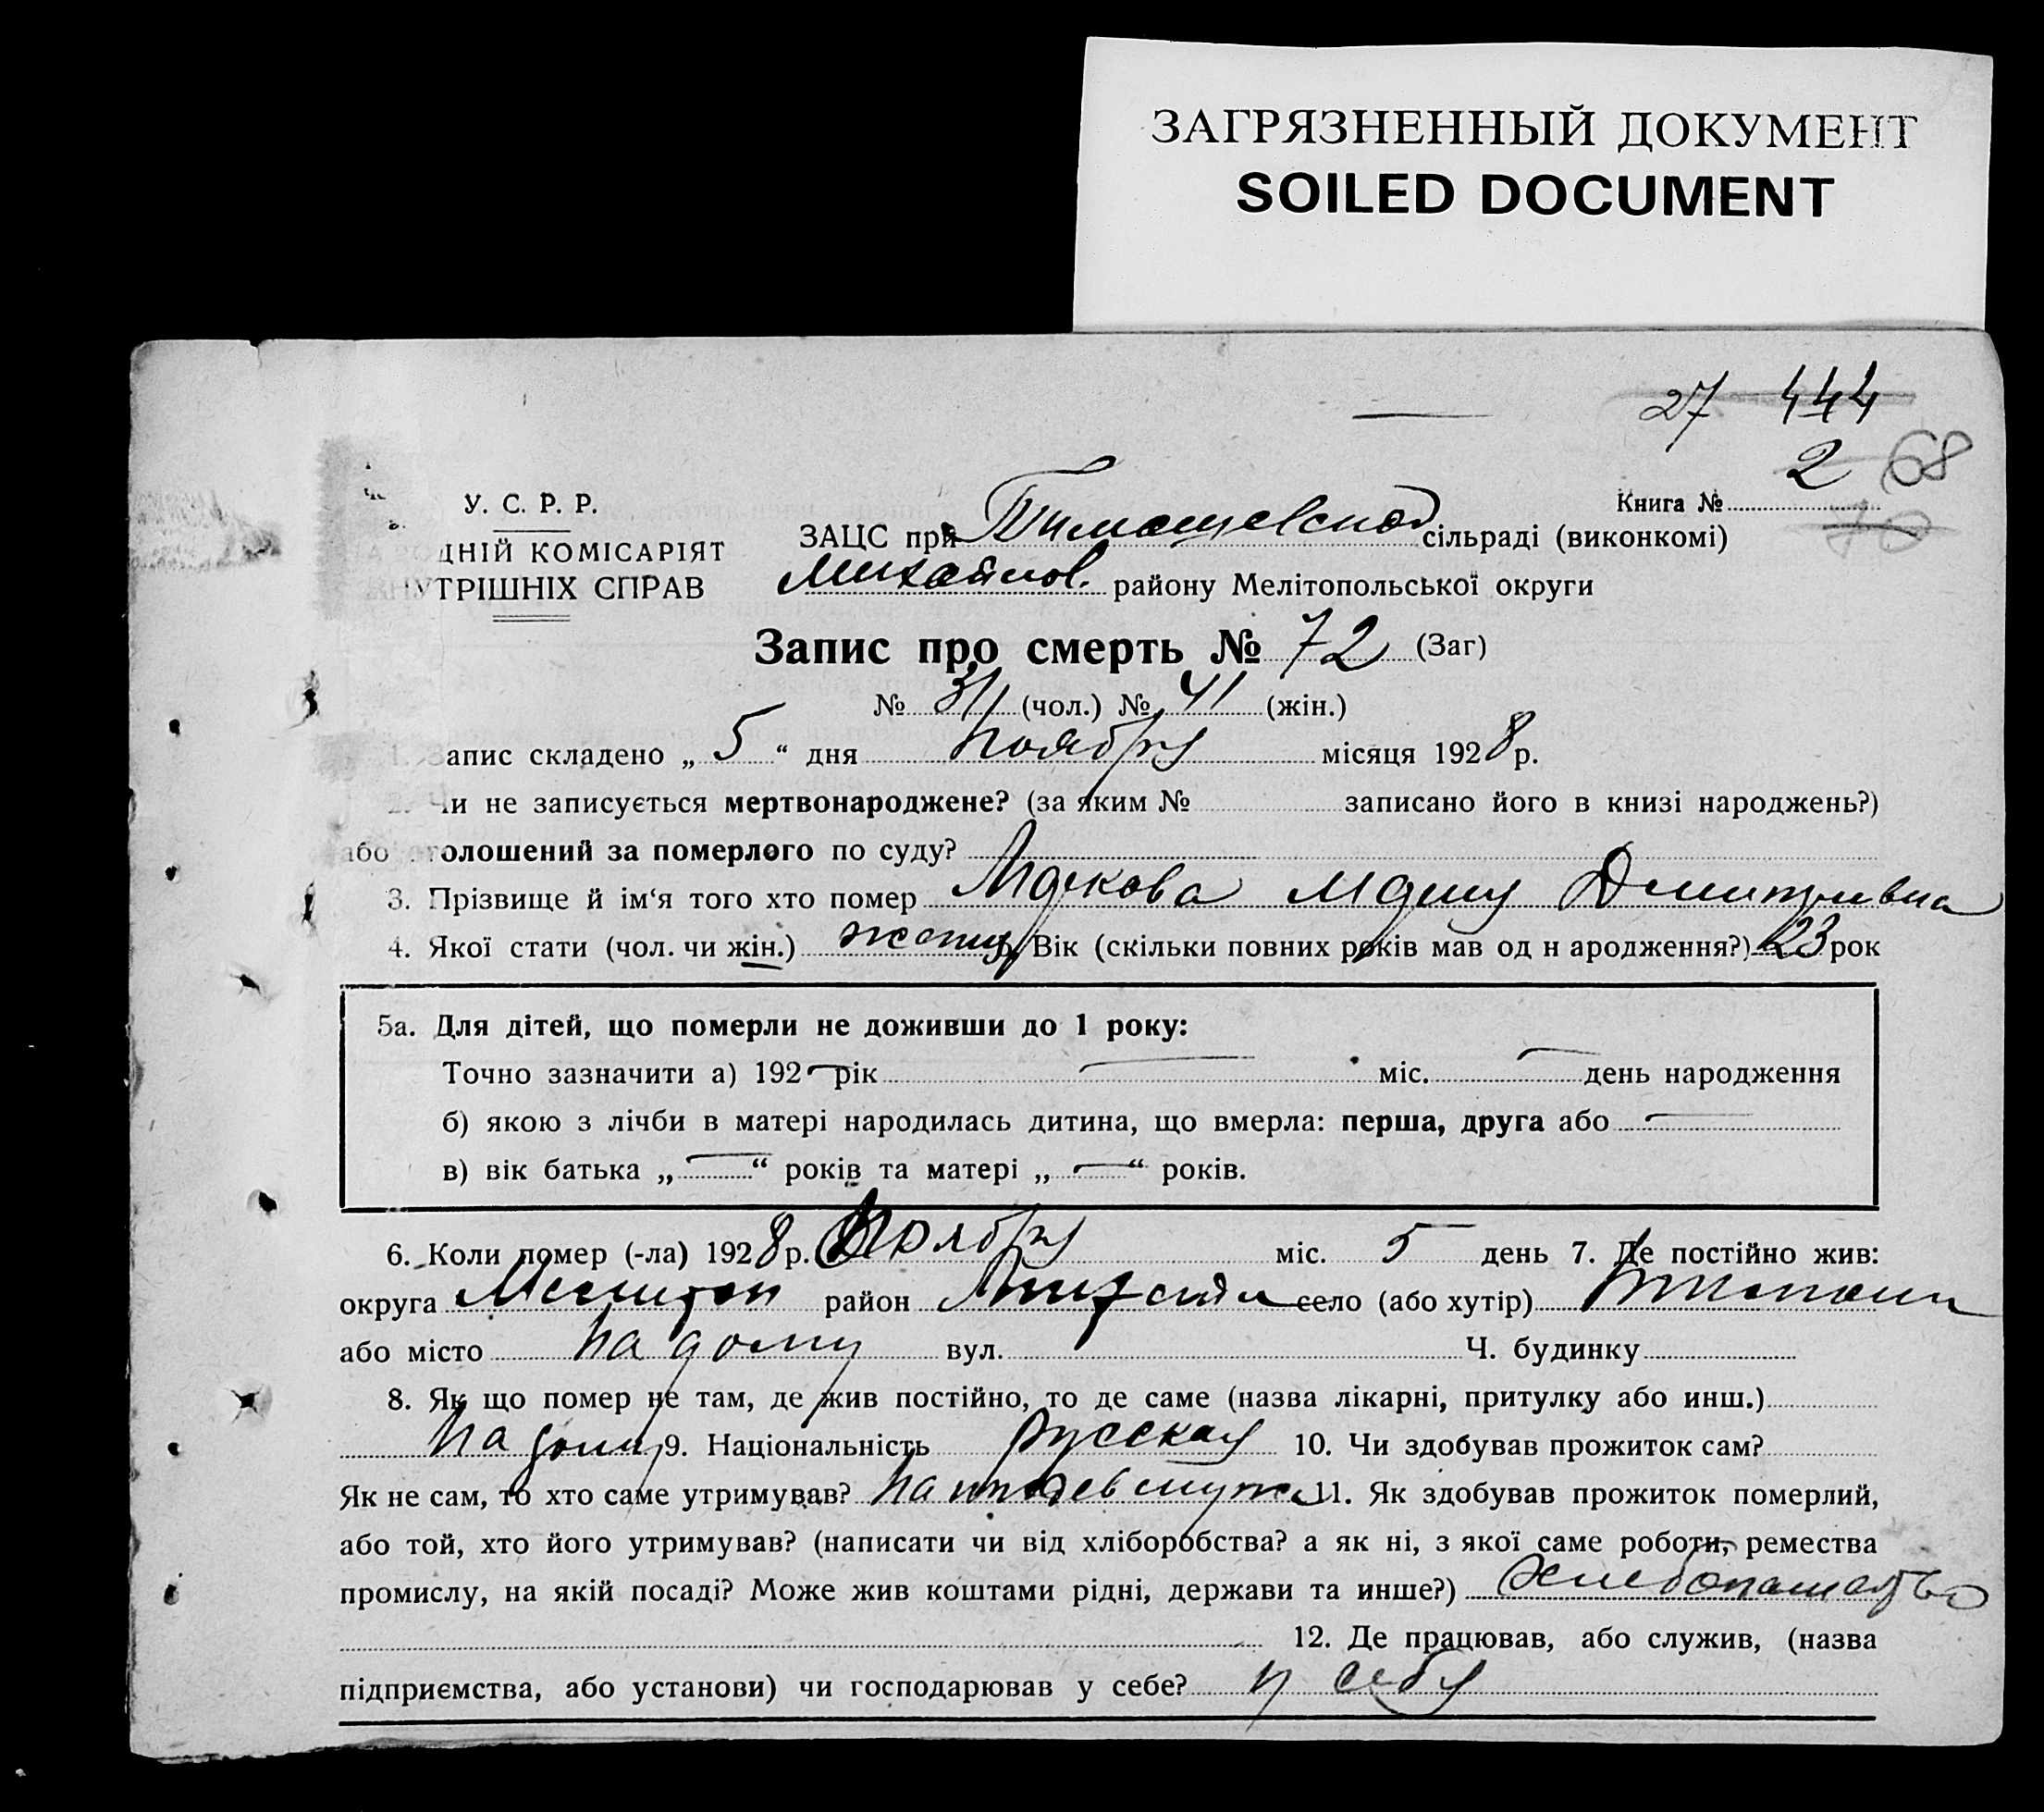 ЗАГРЯЗНЕННЫЙ ДОКУМЕНТ
SOILED DOCUMENT
27 444
2 68
У. С. Р. Р.
Книга №
70
ЗАЦС при Тимошевской сільраді (виконкомі)
ДНІЙ КОМІСАРІЯТ
Михайлов. району Мелітопольської округи
ВНУТРІШНІХ СПРАВ
Запис про смерть № 72 (Заг)
№ 31 (чол.) № 41 (жін.)
1. Запис складено „ 5 “ дня ноября місяця 1928 р.
2. Чи не записується мертвонароджене? (за яким № записано його в книзі народжень?)
або оголошений за померлого по суду?
3. Прізвище й ім‘я того хто помер Дмитривна
4. Якої стати (чол. чи жін.) Вік (скільки повних років мав од н ародження?) 23 рок
5а. Для дітей, що померли не доживши до 1 року:
Точно зазначити а) 192 рік міс. день народження
б) якою з лічби в матері народилась дитина, що вмерла: перша, друга або
в) вік батька „ “ років та матері „ “ років.
6. Коли помер (-ла) 1928 р. Ноября міс. 5 день 7. Де постійно жив:
округа Мелитоп район село (або хутір)
або місто на дому вул. Ч. будинку
8. Як що помер не там, де жив постійно, то де саме (назва лікарні, притулку або инш.)
на дому 9. Національність русская 10. Чи здобував прожиток сам?
Як не сам, то хто саме утримував? 11. Як здобував прожиток померлий,
або той, хто його утримував? (написати чи від хліборобства? а як ні, з якої саме роботи, ремества
промислу, на якій посаді? Може жив коштами рідні, держави та инше?) Хлебопашество
12. Де працював, або служив, (назва
підприємства, або установи) чи господарював у себе? у себя